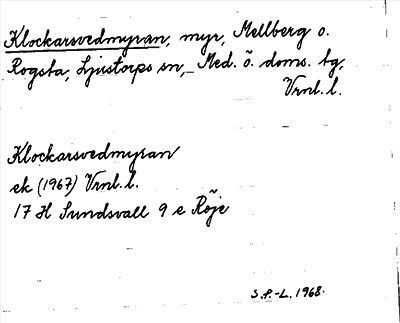 Klockarsvedmyran, myr, Mellberg o.
Rogsta, Ljustorps sn, Med. ö. doms. tg,
Vrnl. l.
Klockarsvedmyran
ek (1967) Vrnl. l.
17 H Sundsvall 9 e Röje
S.P.-L. 1968.